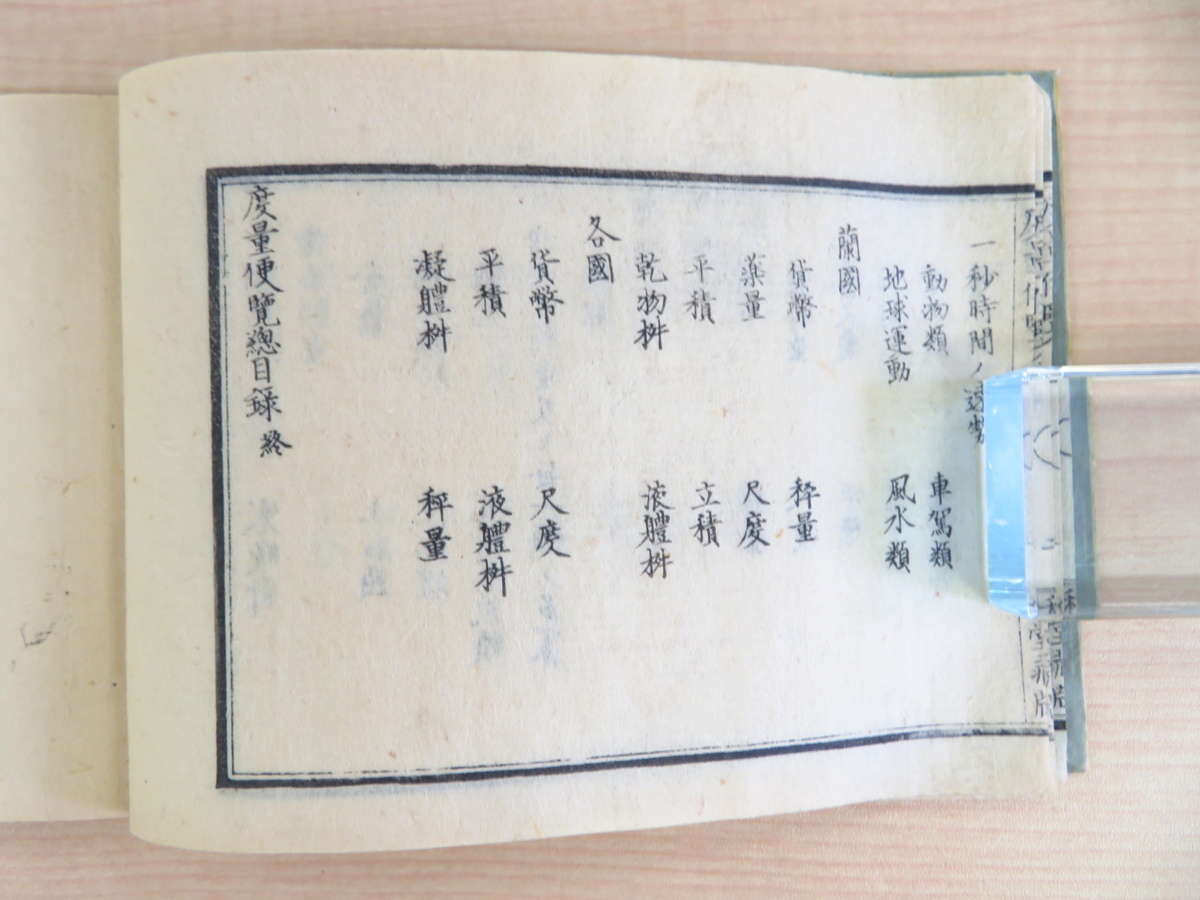 一秒時間ノ速勢
動物類 車駕類
地球運動 風水類
蘭國
貨幣 秤量
藥量 尺度
平積 立積
乾物枡 液體枡
各國
貨幣 尺度
平積 液體枡
凝體枡 秤量
度量便覽總目録 終